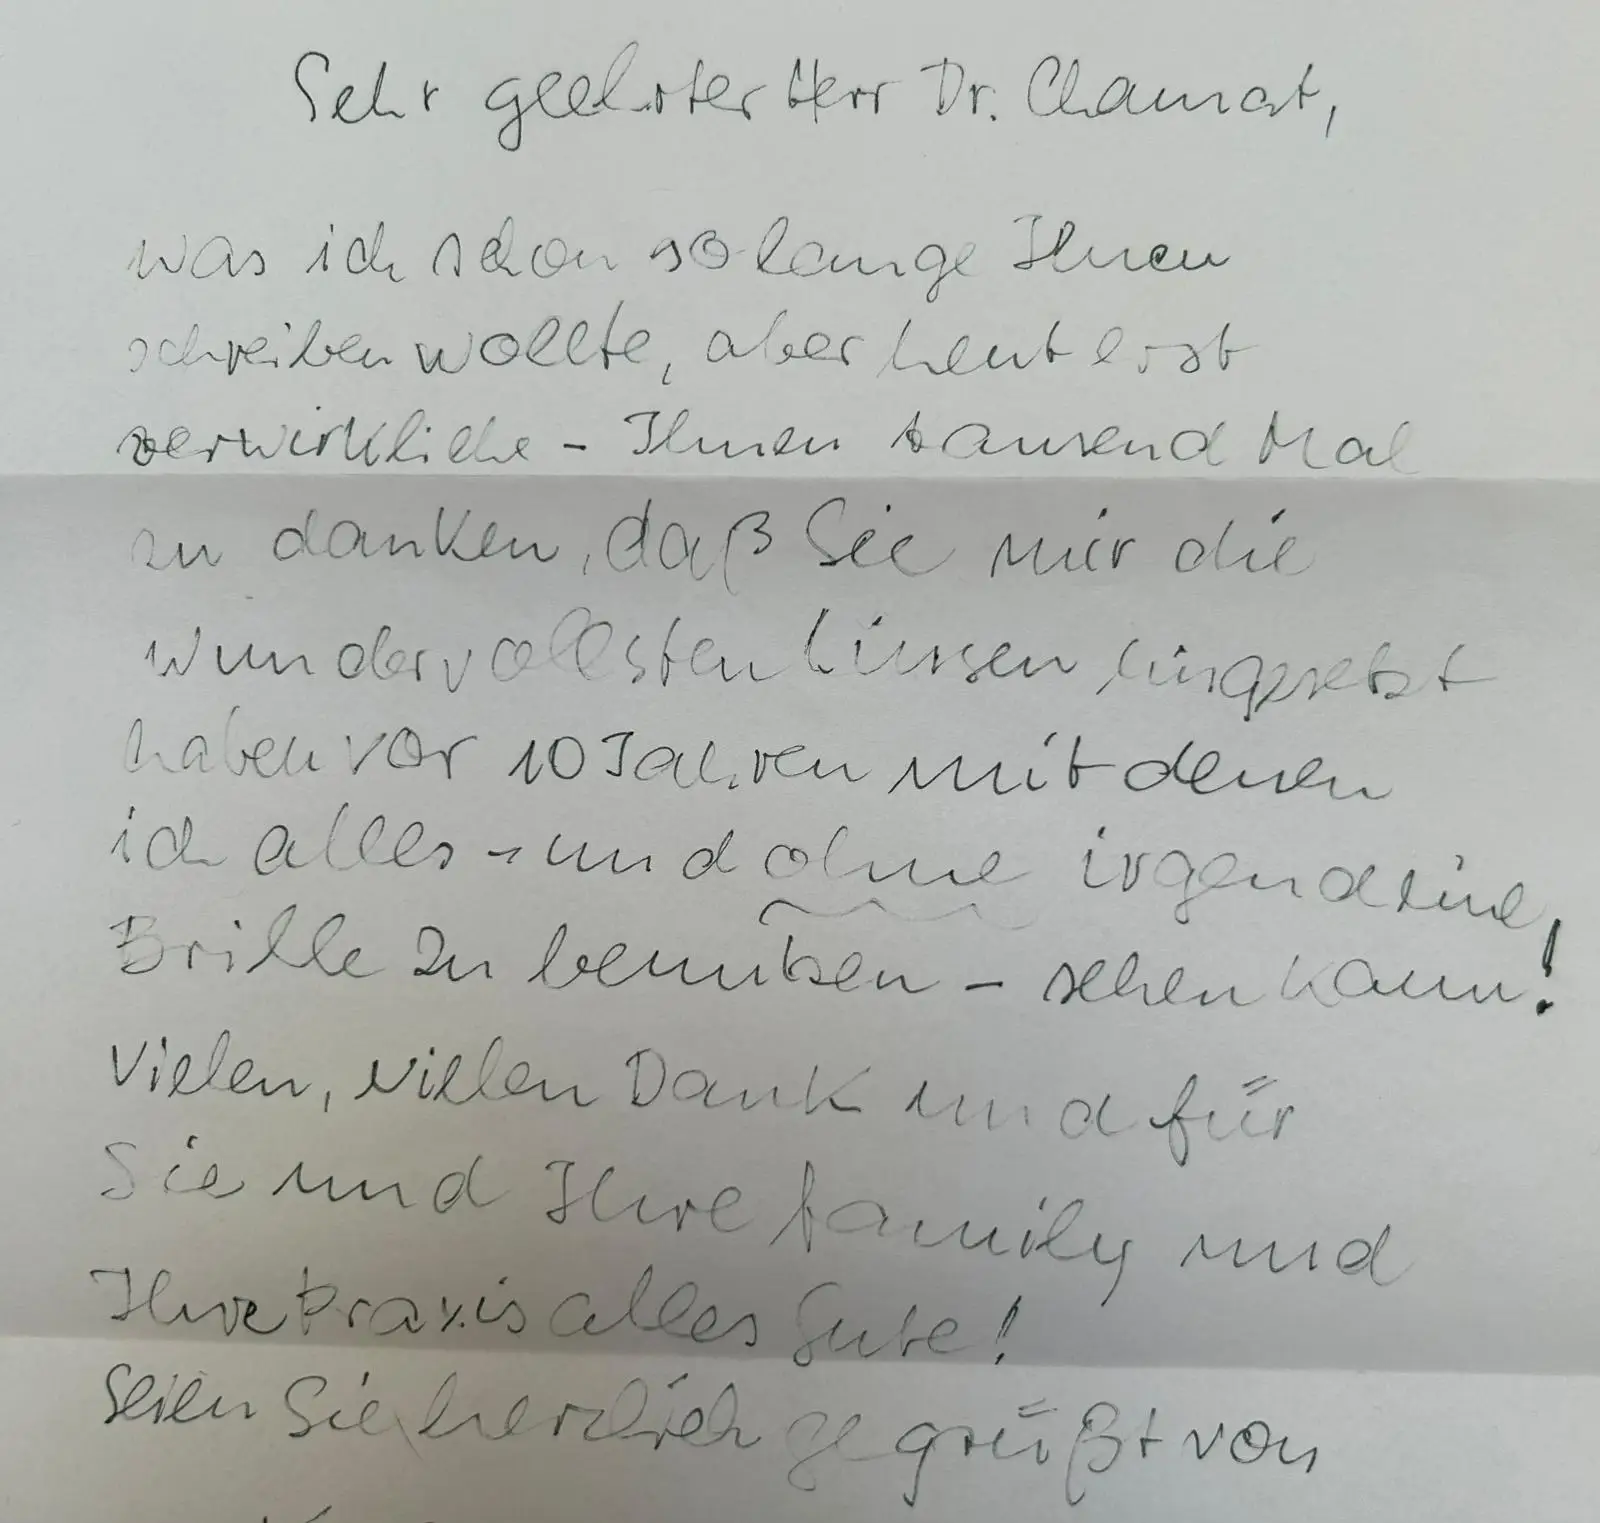 Sehr geehrter Herr Dr. Chamat,
was ich schon so lange Ihnen
schreiben wollte, aber heut erst
verwirkliche – Ihnen tausend Mal
zu danken, daß Sie mir die
wundervollsten Linsen eingesetzt
haben vor 10 Jahren mit denen
ich alles – und ohne irgendeine
Brille zu benutzen – sehen kann!
Vielen, vielen Dank und für
Sie und Ihre Family und
Ihre Praxis alles Gute!
Seien Sie herzlich gegrüßt von